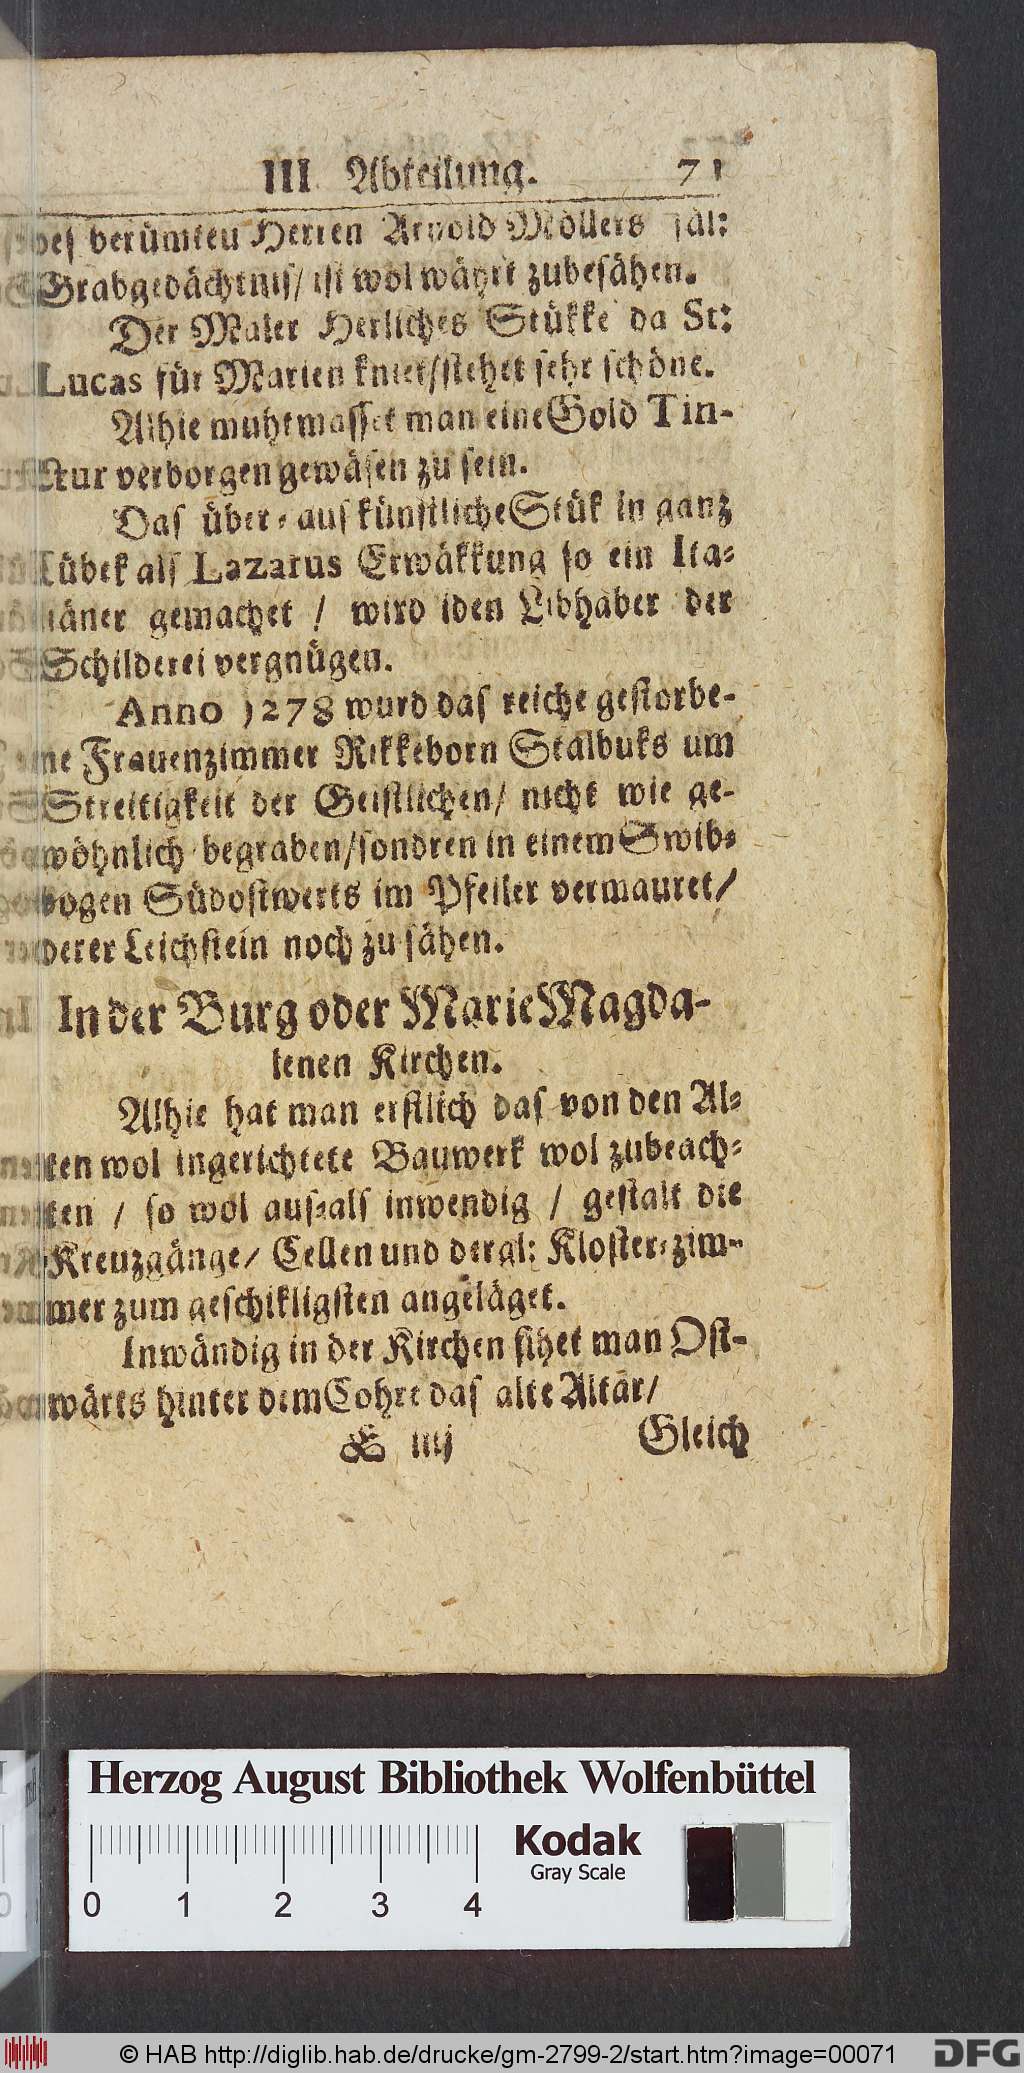 III Abteilung. 71
des berümten Herren Arnold Möllers säl:
Grabgedächtnis/ ist wol währt zubesähen.
Der Maler Herliches Stükke da St:
Lucas für Marien kniet/stehet sehr schöne.
Alhie muhtmasset man eine Gold Tin-
ktur verborgen gewäsen zu sein.
Das über-aus künstliche Stük in ganz
Lübek als Lazarus Erwäkkung so ein Ita-
liäner gemachet / wird iden Libhaber der
Schilderei vergnügen.
Anno 1278 wurd das reiche gestorbe-
ne Frauenzimmer Rikkeborn Stalbuks um
Streitigkeit der Geistlichen/ nicht wie ge-
wöhnlich begraben/sondren in einem Swib-
bogen Südostwerts im Pfeiler vermauret/
derer Leichstein noch zu sähen.
In der Burg oder Marie Magda-
lenen Kirchen.
Alhie hat man erstlich das von den Al-
ten wol ingerichtete Bauwerk wol zubeach-
ten / so wol aus-als inwendig / gestalt die
Kreuzgänge/ Cellen und dergl: Kloster-zim-
mer zum geschikligsten angeläget.
Inwändig in der Kirchen sihet man Ost-
wärts hinter dem Cohre das alte Altar/
E iiij Gleich
Herzog August Bibliothek Wolfenbüttel
Kodak
Gray Scale
0 1 2 3 4
© HAB http://diglib.hab.de/drucke/gm-2799-2/start.htm?image=00071
DFG